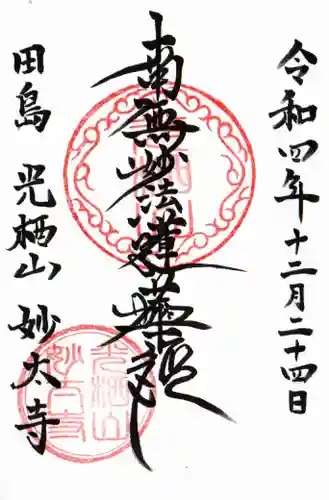 令和四年十二月二十四日
南無妙法蓮華経
田島 光栖山 妙太寺
光栖山
妙太寺